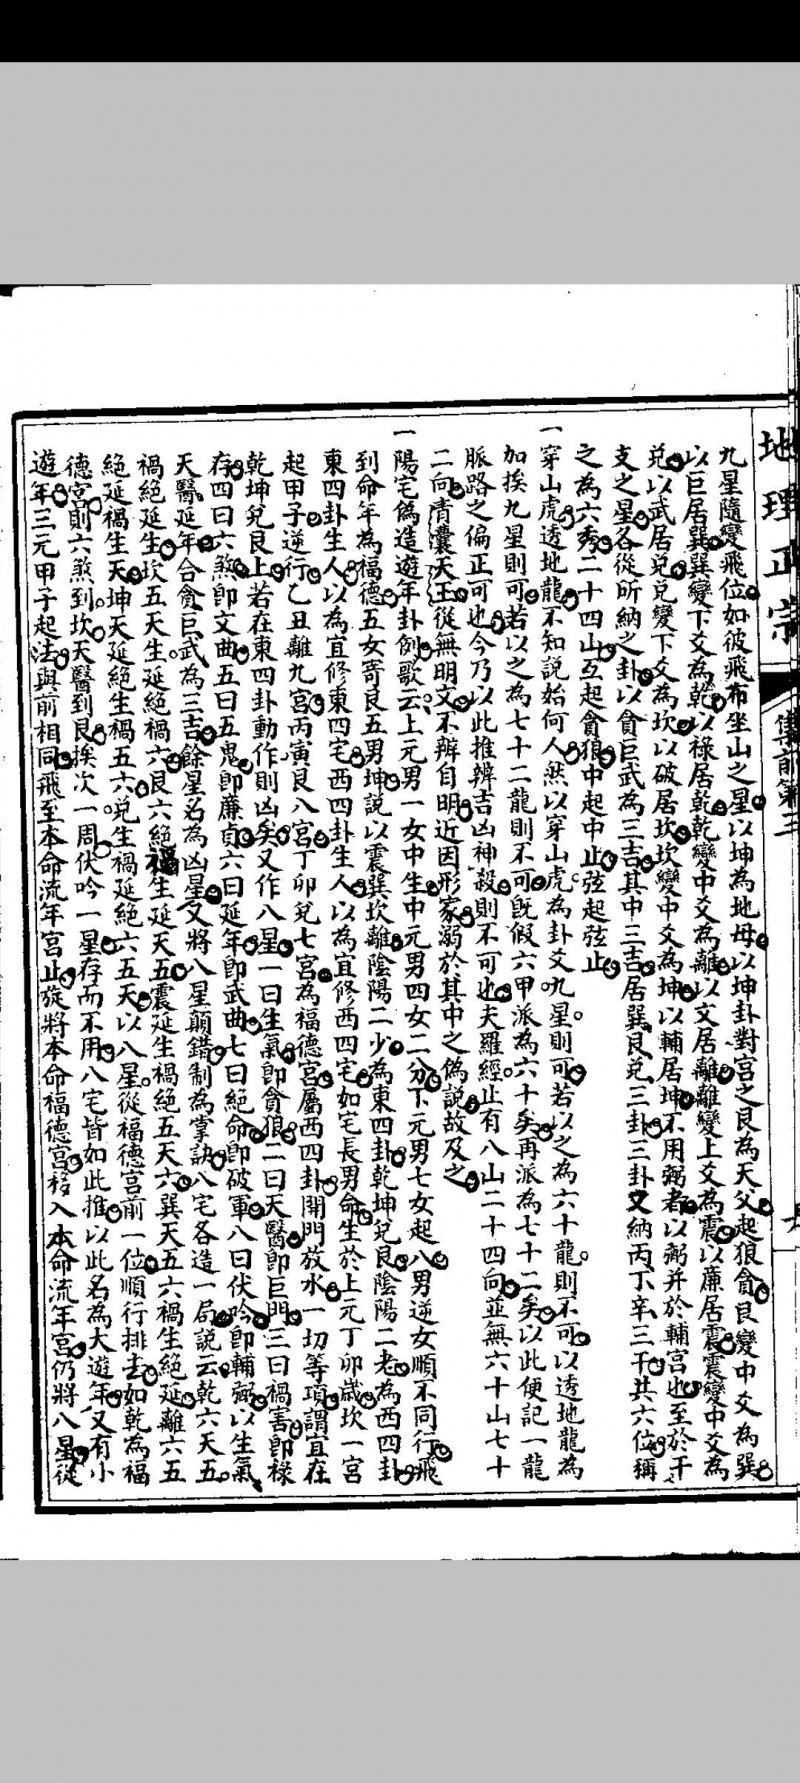 地理正宗
集前第三
九星隨變飛位如彼飛布坐山之星以坤為地母以坤卦對宮之艮為天父起狼貪艮變中爻為巽
以巨居巽巽變下爻為乾以祿居乾乾變中爻為離以文居離離變上爻為震以廉居震震變中爻為
兌以武居兌兌變下爻為坎以破居坎坎變中爻為坤以輔居坤不用弼者以弼并於輔宮也至於干
支之星各從所納之卦以貪巨武為三吉其中三吉居巽艮兌三卦三卦又納丙丁辛三干共六位稱
之為六秀二十四山互起貪狼中起中止弦起弦止
一穿山虎透地龍不知說始何人然以穿山虎為卦爻九星則可若以之為六十龍則不可以透地龍為
加挨九星則可若以之為七十二龍則不可既假六甲派為六十矣再派為七十二矣以此便記一龍
脈路之偏正可也今乃以此推辨吉凶神殺則不可也夫羅經止有八山二十四向並無六十山七十
二向青囊天玉從無明文不辨自明近因形家溺於其中之偽說故及之
一陽宅偽造遊年卦例歌云上元男一女中生中元男四女二分下元男七女起八男逆女順不同行飛
到命年為福德五女寄艮五男坤說以震巽坎離陰陽二少為東四卦乾坤兌艮陰陽二老為西四卦
東四卦生人以為宜修東四宅西四卦生人以為宜修西四宅如宅長男命生於上元丁卯歲坎一宮
起甲子逆行乙丑離九宮丙寅艮八宮丁卯兌七宮為福德宮屬西四卦開門放水一切等項謂宜在
乾坤兌艮上若在東四卦動作則凶矣又作八星一曰生氣即貪狼二曰天醫即巨門三曰禍害即祿
存四曰六煞即文曲五曰五鬼即廉貞六曰延年即武曲七曰絕命即破軍八曰伏吟即輔弼以生氣
天醫延年合貪巨武為三吉餘星名為凶星又將八星顛錯制為掌訣八宅各造一局說云乾六天五
禍絕延生坎五天生延絕禍六艮六絕禍生延天五震延生禍絕五天六巽天五六禍生絕延離六五
絕延禍生天坤天延絕生禍五六兌生禍延絕六五天以八星從福德宮前一位順行排去如乾為福
德宮則六煞到坎天醫到艮挨次一周伏吟一星存而不用八宅皆如此推以此名為大遊年又有小
遊年三元甲子起法與前相同飛至本命流年宮止旋將本命福德宮移入本命流年宮仍將八星從